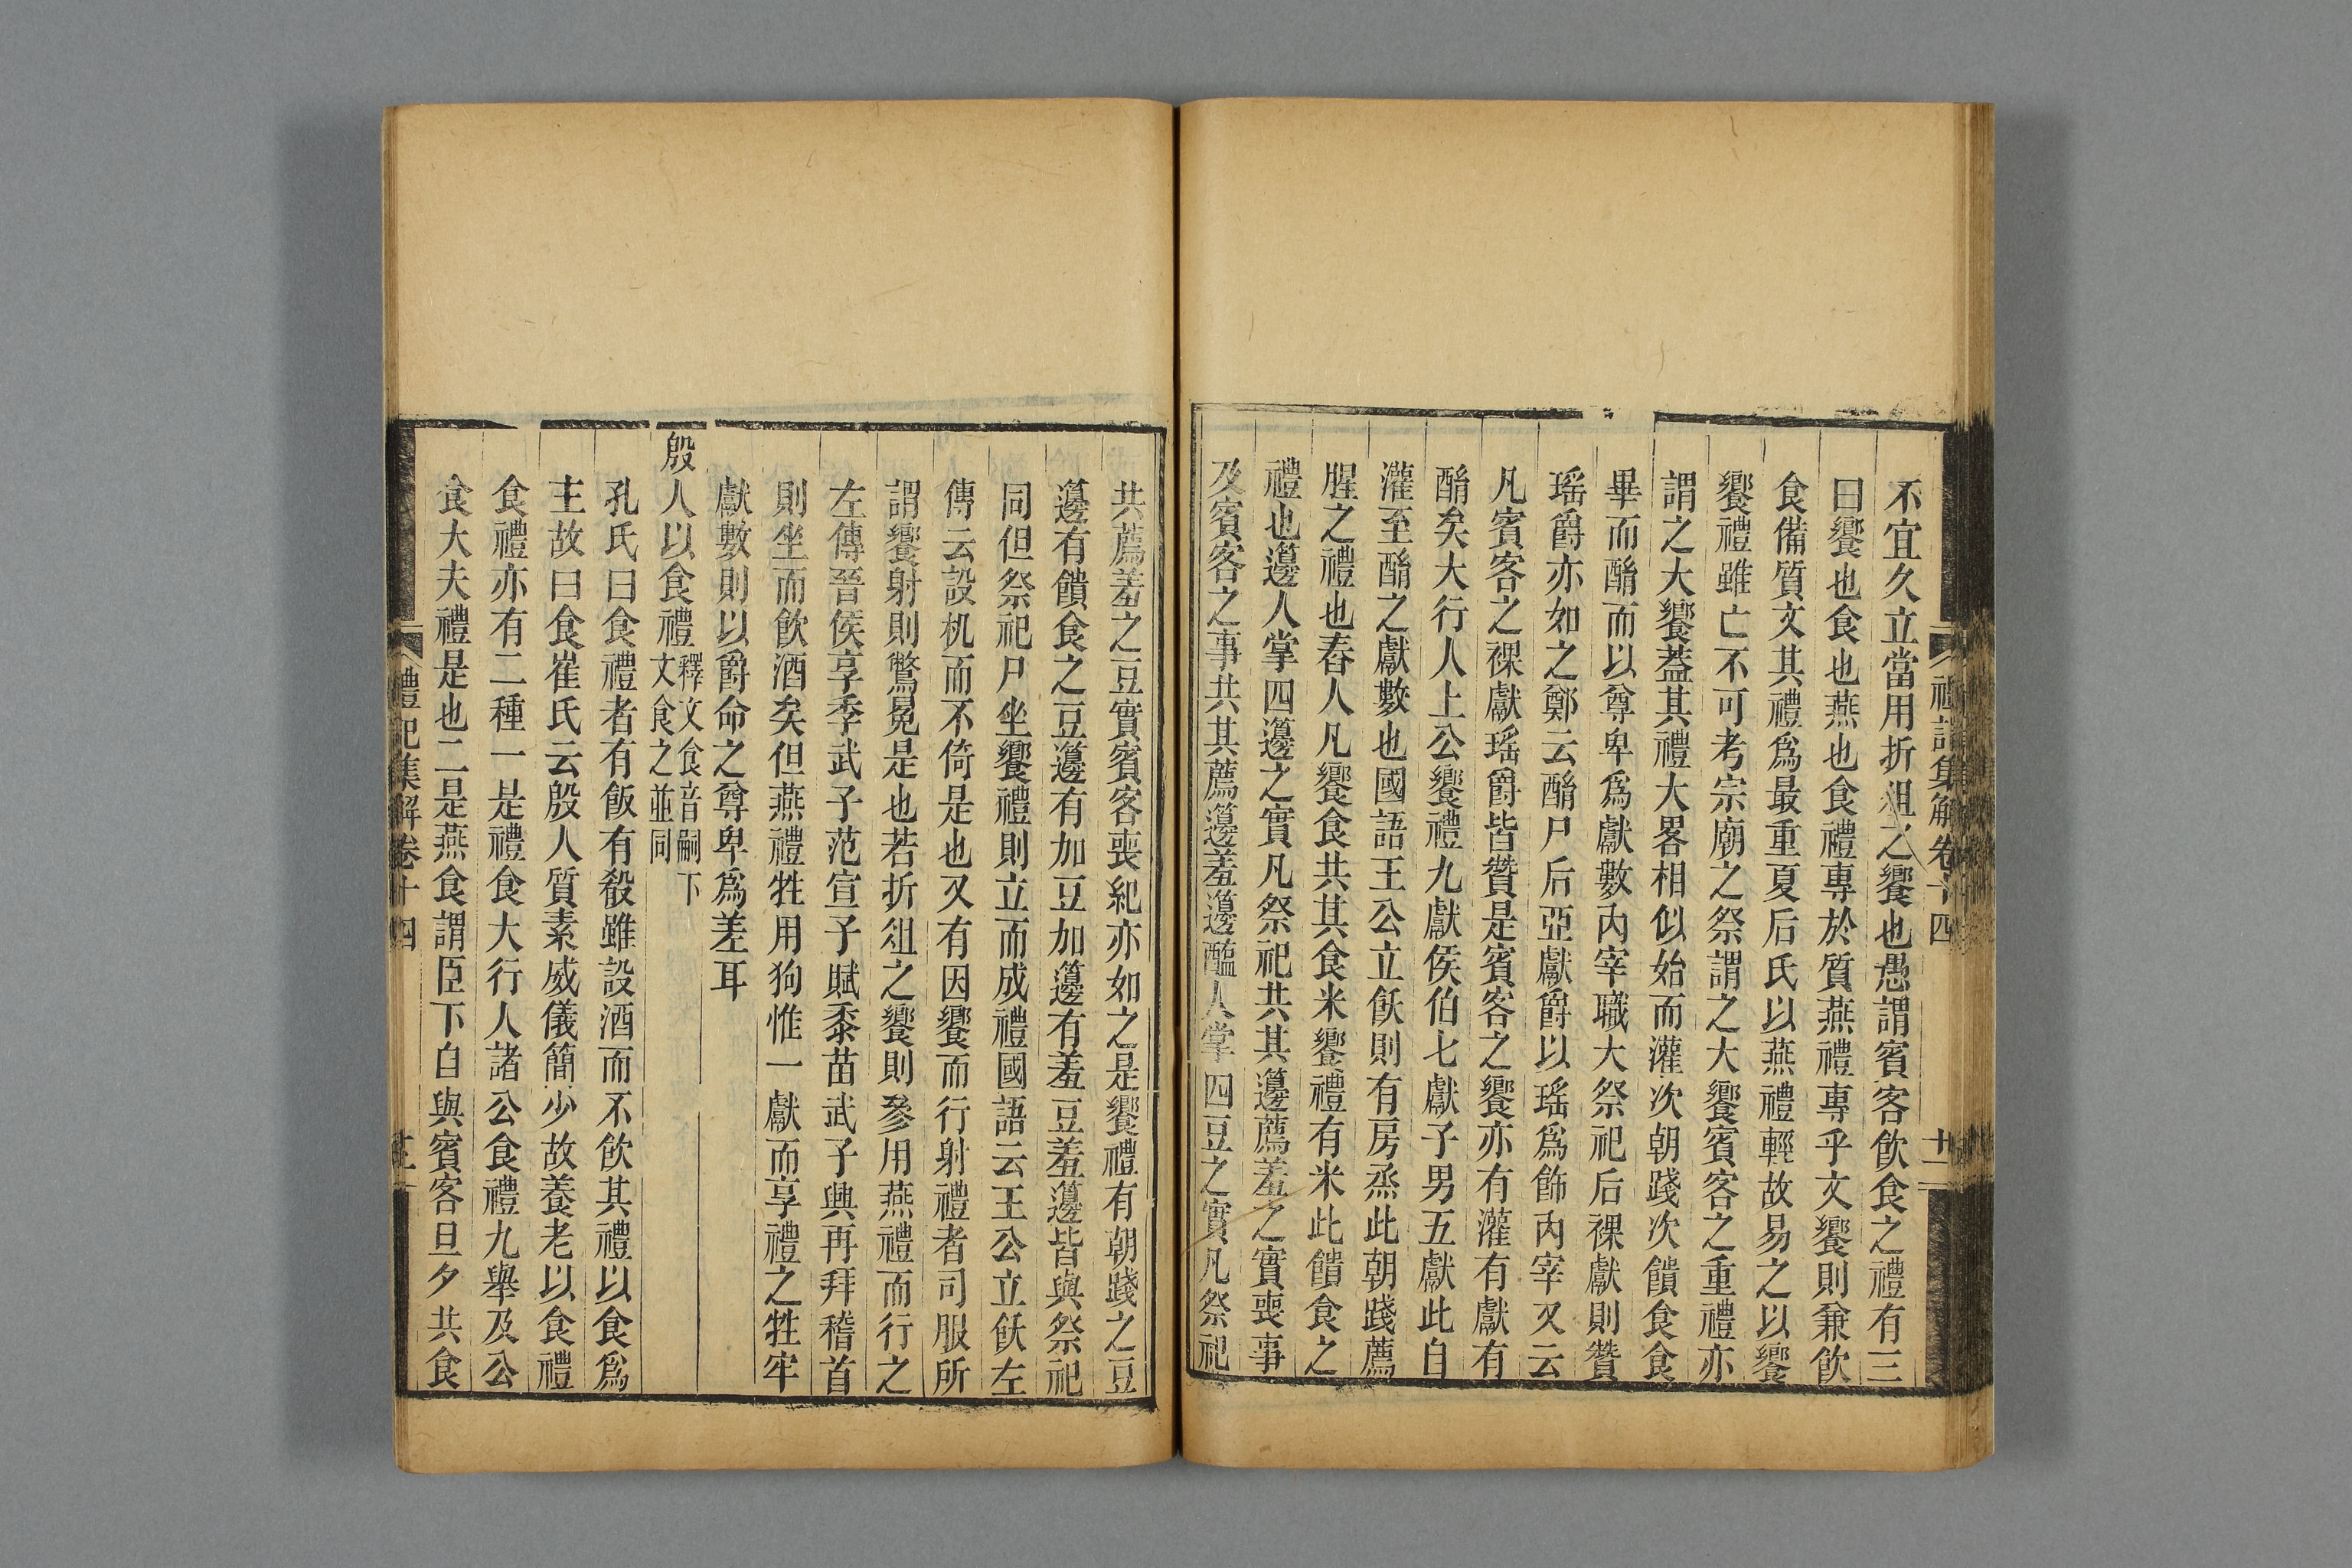 禮記集解卷十四
十二
不宜久立當用折俎之饗也愚謂賓客飲食之禮有三
曰饗也食也燕也食禮專於質燕禮專乎文饗則兼飲
食備質文其禮爲最重夏后氏以燕禮輕故易之以饗
饗禮雖亡不可考宗廟之祭謂之大饗賓客之重禮亦
謂之大饗葢其禮大畧相似始而灌次朝踐次饋食食
畢而酳而以尊卑爲獻數內宰職大祭祀后祼獻則贊
瑤爵亦如之鄭云酳尸后亞獻爵以瑤爲飾內宰又云
凡賓客之祼獻瑤爵皆贊是賓客之饗亦有灌有獻有
酳矣大行人上公饗禮九獻侯伯七獻子男五獻此自
灌至酳之獻數也國語王公立飫則有房烝此朝踐薦
腥之禮也舂人凡饗食共其食米饗禮有米此饋食之
禮也籩人掌四籩之實凡祭祀共其籩薦羞之實喪事
及賓客之事共其薦籩羞籩醢人掌四豆之實凡祭祀
共薦羞之豆實賓客喪紀亦如之是饗禮有朝踐之豆
籩有饋食之豆籩有加豆加籩有羞豆羞籩皆與祭祀
同但祭祀尸坐饗禮則立而成禮國語云王公立飫左
傳云設机而不倚是也又有因饗而行射禮者司服所
謂饗射則鷩冕是也若折俎之饗則參用燕禮而行之
左傳晉侯享季武子范宣子賦黍苗武子興再拜稽首
則坐而飲酒矣但燕禮牲用狗惟一獻而享禮之牲牢
獻數則以爵命之尊卑爲差耳
殷人以食禮釋文食音嗣下
文食之並同
孔氏曰食禮者有飯有殽雖設酒而不飲其禮以食爲
主故曰食崔氏云殷人質素威儀簡少故養老以食禮
食禮亦有二種一是禮食大行人諸公食禮九舉及公
食大夫禮是也二是燕食謂臣下自與賓客旦夕共食
禮記集解卷十四